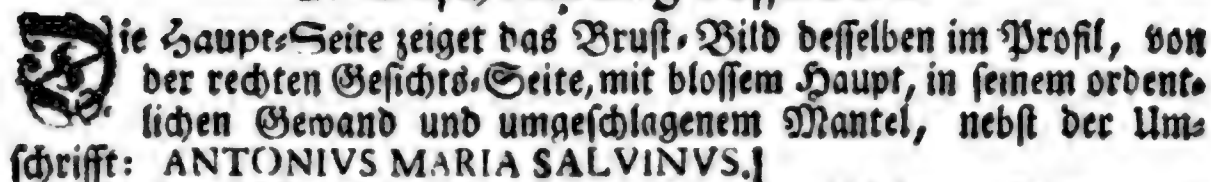 Die Haupt-Seite zeiget das Brust-Bild desselben im Profil, von
der rechten Gesichts-Seite, mit blossem Haupt, in seinem ordent-
lichen Gewand und umgeschlagenem Mantel, nebst der Um-
schrifft: ANTONIVS MARIA SALVINVS.